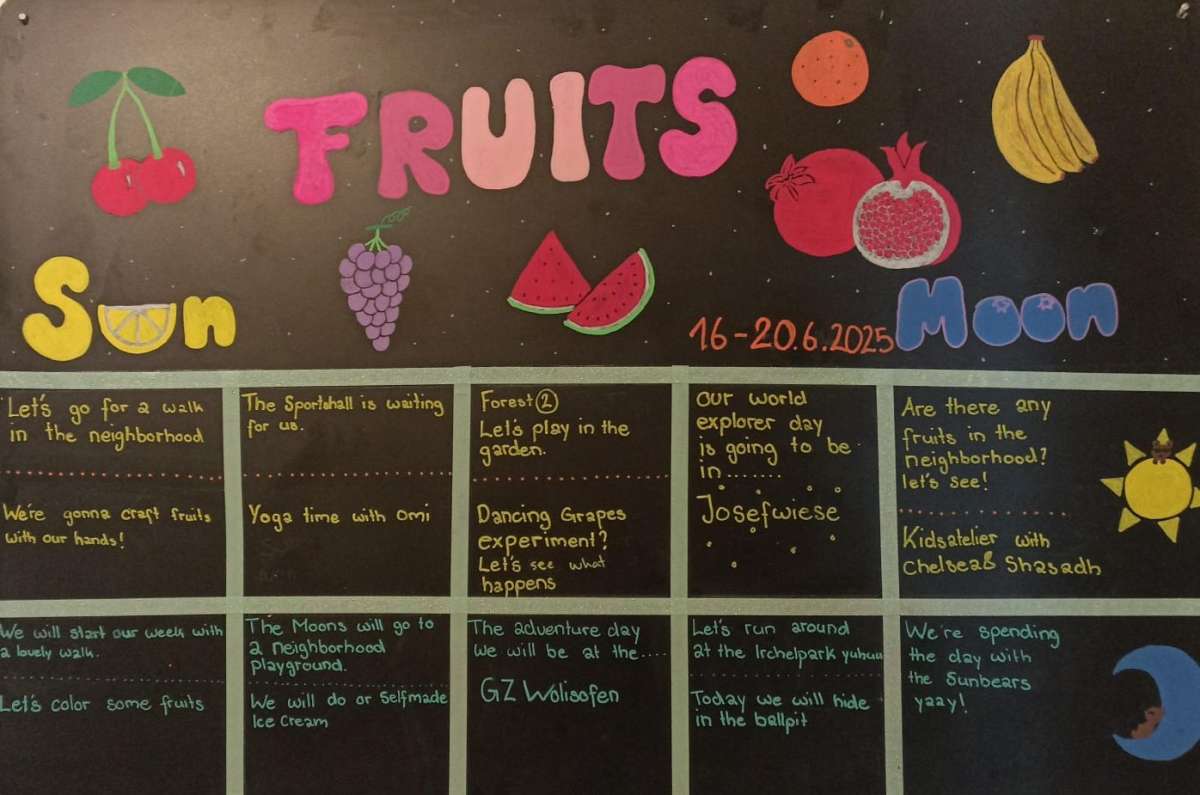 FRUITS
Sun
16-20.6.2025
Moon
Let's go for a walk
in the neighborhood
We're gonna craft fruits
with our hands!
The Sportshall is waiting
for us.
Yoga time with Omi
Forest 2
Let's play in the
garden.
Dancing Grapes
experiment?
Let's see what
happens
our world
explorer day
is going to be
in.......
Josefwiese
Are there any
fruits in the
neighborhood?
let's see!
Kidsatelier with
Chelsea& Shasadh
We will start our week with
a lovely walk.
Let's color some fruits
The Moons will go to
a neighborhood
playground.
We will do or Selfmade
Ice Cream
The adventure day
we will be at the....
GZ Wolisofen
Let's run around
at the Irchelpark yuhuu
Today we will hide
in the ballpit
We're spending
the day with
the Sunbears
yaay!